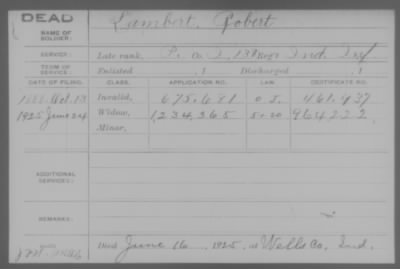 DEAD
NAME OF SOLDIER: Lambert, Robert
SERVICE: Late rank, P. Co. I, 138 Regt. Ind. Inf
TERM OF SERVICE: Enlisted , 1 Discharged , 1
DATE OF FILING. CLASS. APPLICATION NO. LAW. CERTIFICATE NO.
1888. Oct. 13 Invalid, 675.681 O.S. 461.437
1925 June 24 Widow, 1234,365 5.20 964222
Minor,
ADDITIONAL SERVICES:
REMARKS:
Died June 16, 1925, at Wells Co. Ind.